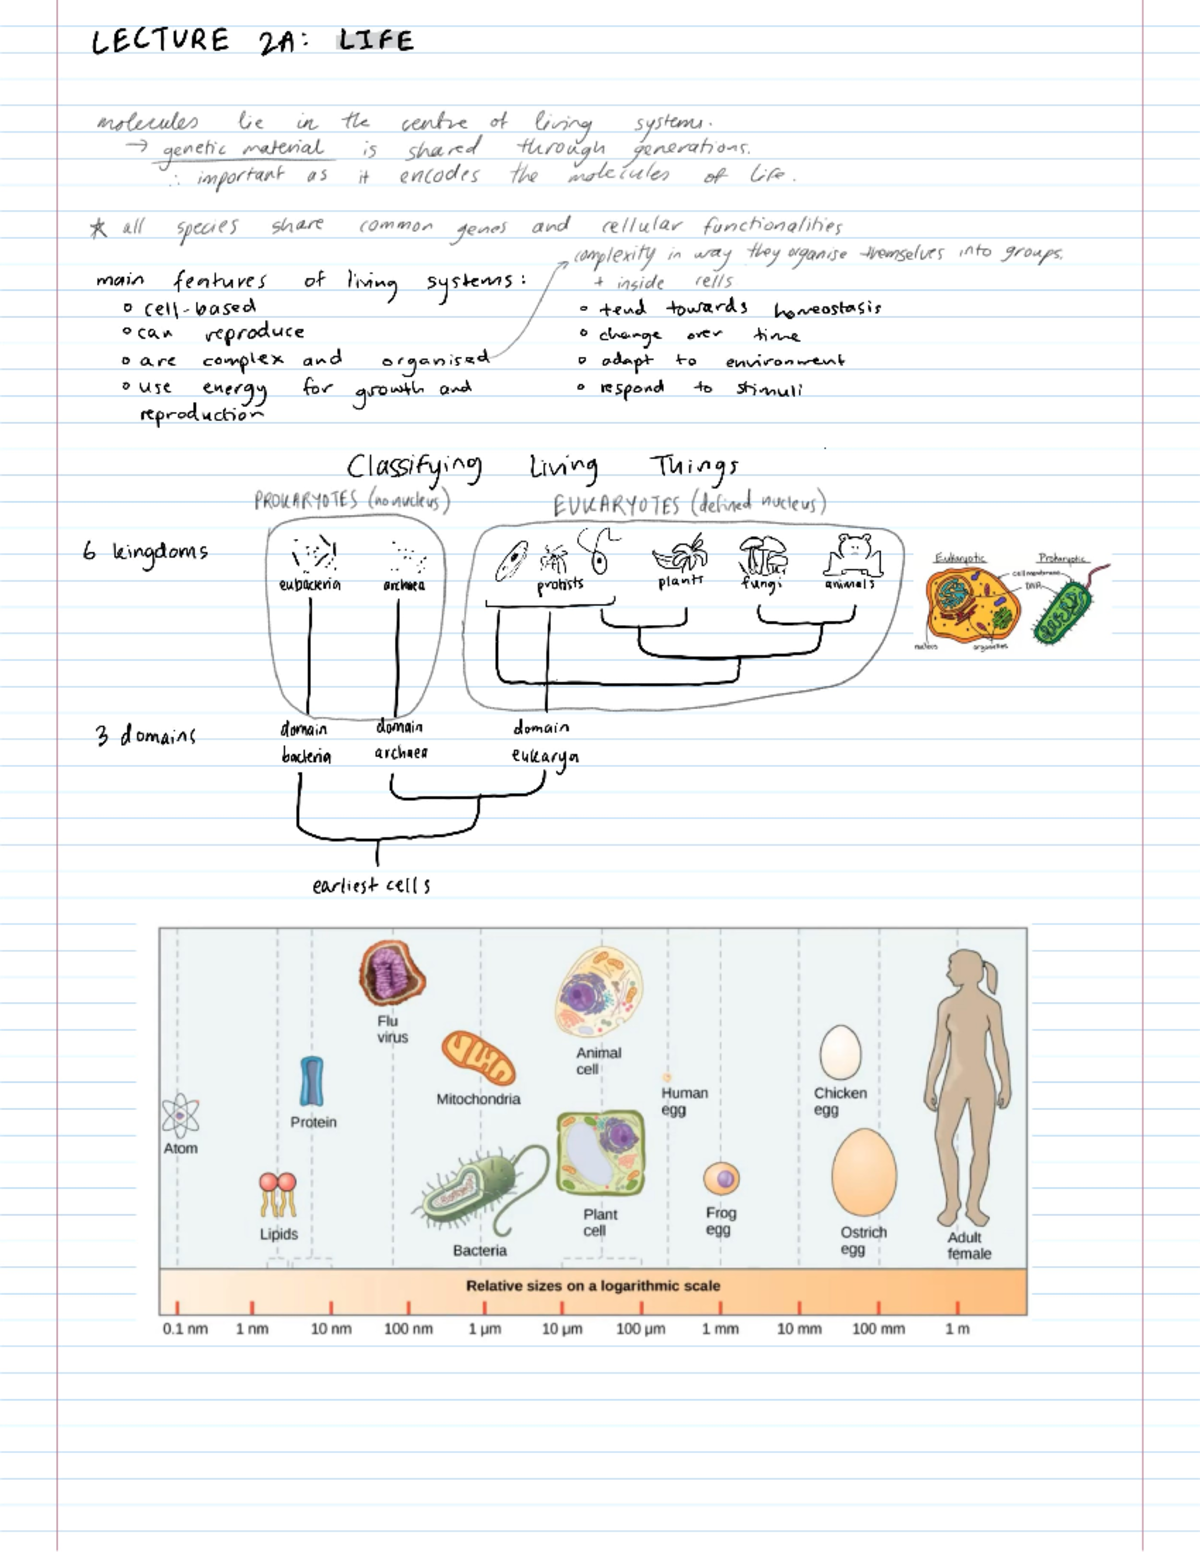 LECTURE 2A: LIFE
molecules lie in the centre of living systems.
→ genetic material is shared through generations.
∴ important as it encodes the molecules of life.
★ all species share common genes and cellular functionalities
complexity in way they organise themselves into groups.
+ inside cells
main features of living systems:
o cell-based
o can reproduce
o are complex and organised
o use energy for growth and
reproduction
o tend towards homeostasis
o change over time
o adapt to environment
o respond to stimuli
Classifying Living Things
PROKARYOTES (no nucleus)
EUKARYOTES (defined nucleus)
6 kingdoms
eubacteria
archaea
protists
plants
fungi
animals
Eukaryotic
Prokaryotic
cell membrane
DNA
nucleus
organelles
3 domains
domain
bacteria
domain
archaea
domain
eukarya
earliest cells
Flu
virus
Animal
cell
Mitochondria
Human
egg
Chicken
egg
Protein
Atom
Lipids
Bacteria
Plant
cell
Frog
egg
Ostrich
egg
Adult
female
Relative sizes on a logarithmic scale
0.1 nm 1 nm 10 nm 100 nm 1 µm 10 µm 100 µm 1 mm 10 mm 100 mm 1 m